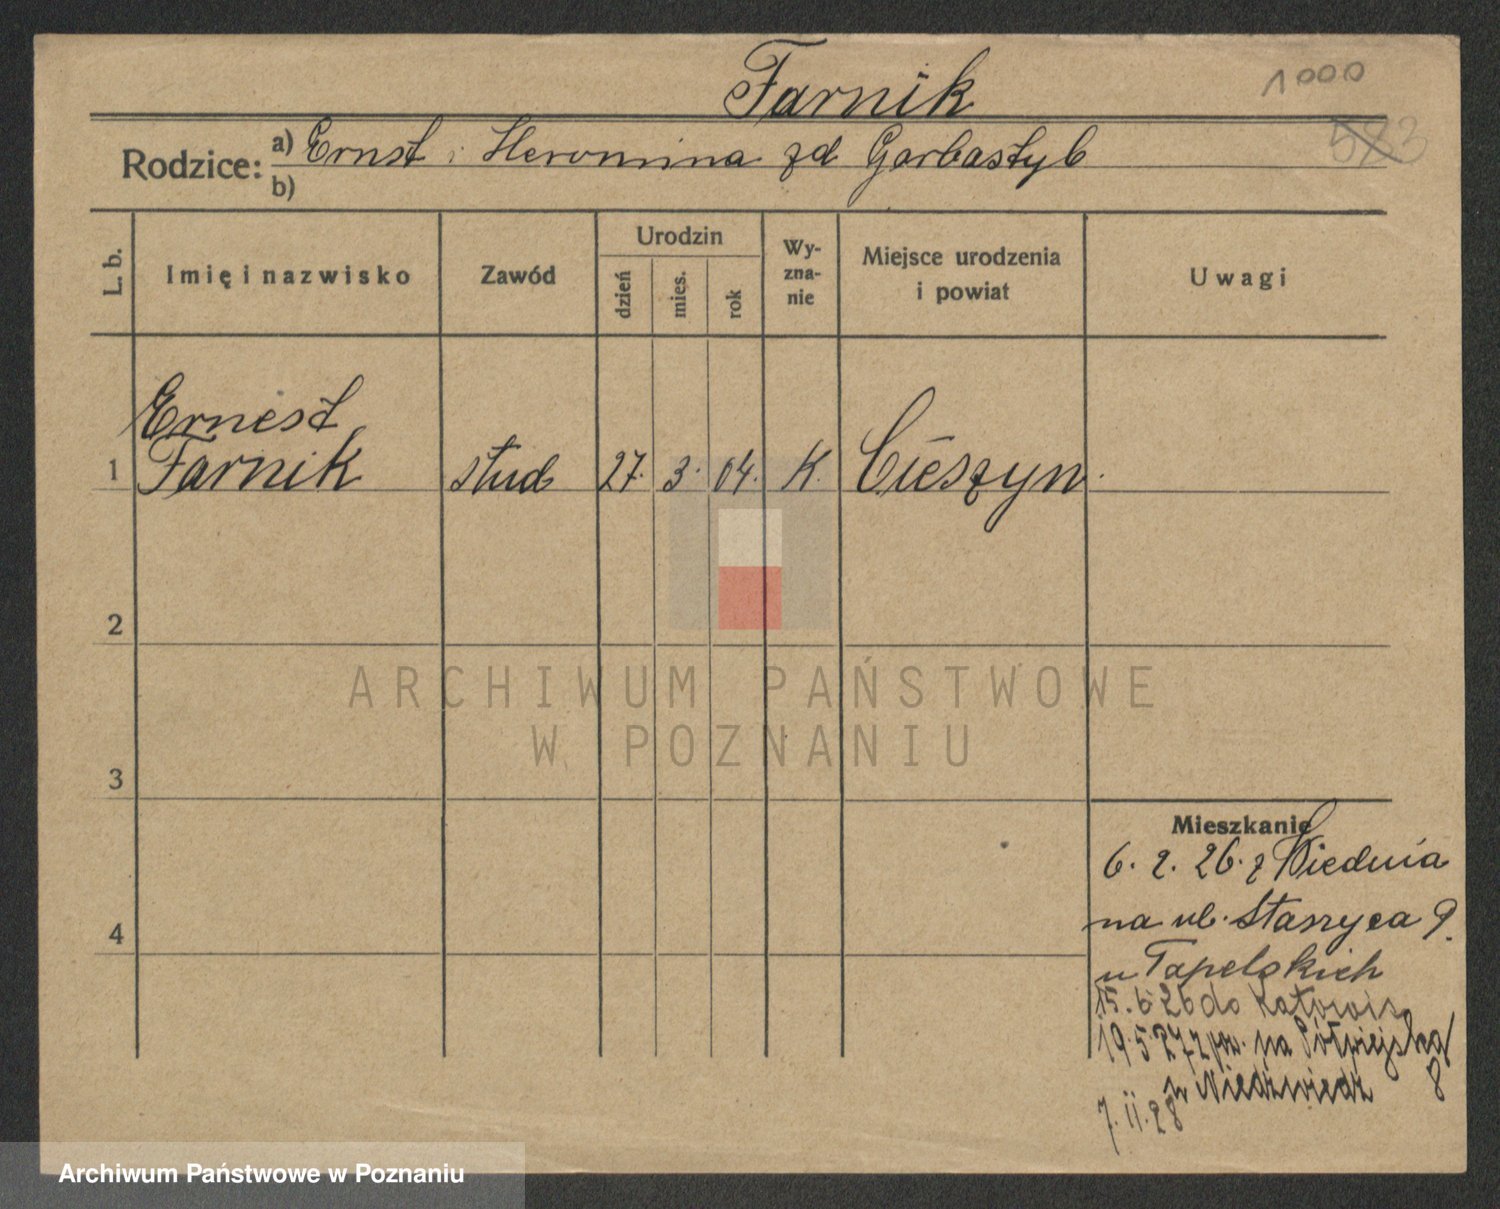 Farnik
1000
583
Rodzice: a) Ernst i Heronina zd Garbastyb
b)
L. b.
Imię i nazwisko
Zawód
Urodzin
dzień
mies.
rok
Wy-
zna-
nie
Miejsce urodzenia
i powiat
Uwagi
Ernest
1 Farnik stud 27. 3. 04. K. Cieszyn.
2
ARCHIWUM PAŃSTWOWE
W POZNANIU
3
Mieszkanie
6. 2. 26. z Wiednia
na ul. Staszyca 9.
4
u Tapelskich
15. 6 26 do Katowic
19. 5. 27 z na Półwiejską
8
u Niedźwiedz
7. II. 28
Archiwum Państwowe w Poznaniu